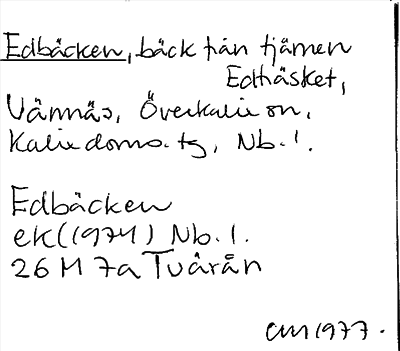 Edbäcken, bäck från tjärnen
Edträsket,
Vännäs, Överkalix sn,
Kalix doms. tg, Nb. l.
Edbäcken
ek (1974) Nb. l.
26 M 7a Tvärån
CM 1977.